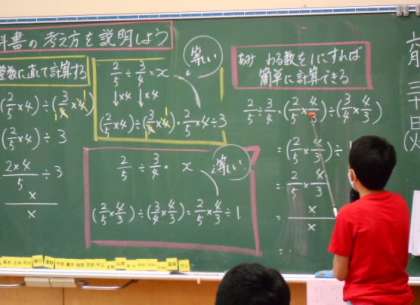 科書の考え方を説明しよう
整数に直して計算する
(2/5×4)÷(3/4×4)
(2/5×4)÷3
2×4/5÷3
x/x
2/5÷3/4=x
↓×4 ↓×4
等しい
(2/5×4)÷(3/4×4)=2/5×4÷3
2/5÷3/4=x
等しい
(2/5×4/3)÷(3/4×4/3)=2/5×4/3÷1
わる数を1にすれば
簡単に計算できる
2/5÷3/4=(2/5×4/3)÷(3/4×4/3)
=(2/5×4/3)÷1
=2/5×4/3
=x/x
=